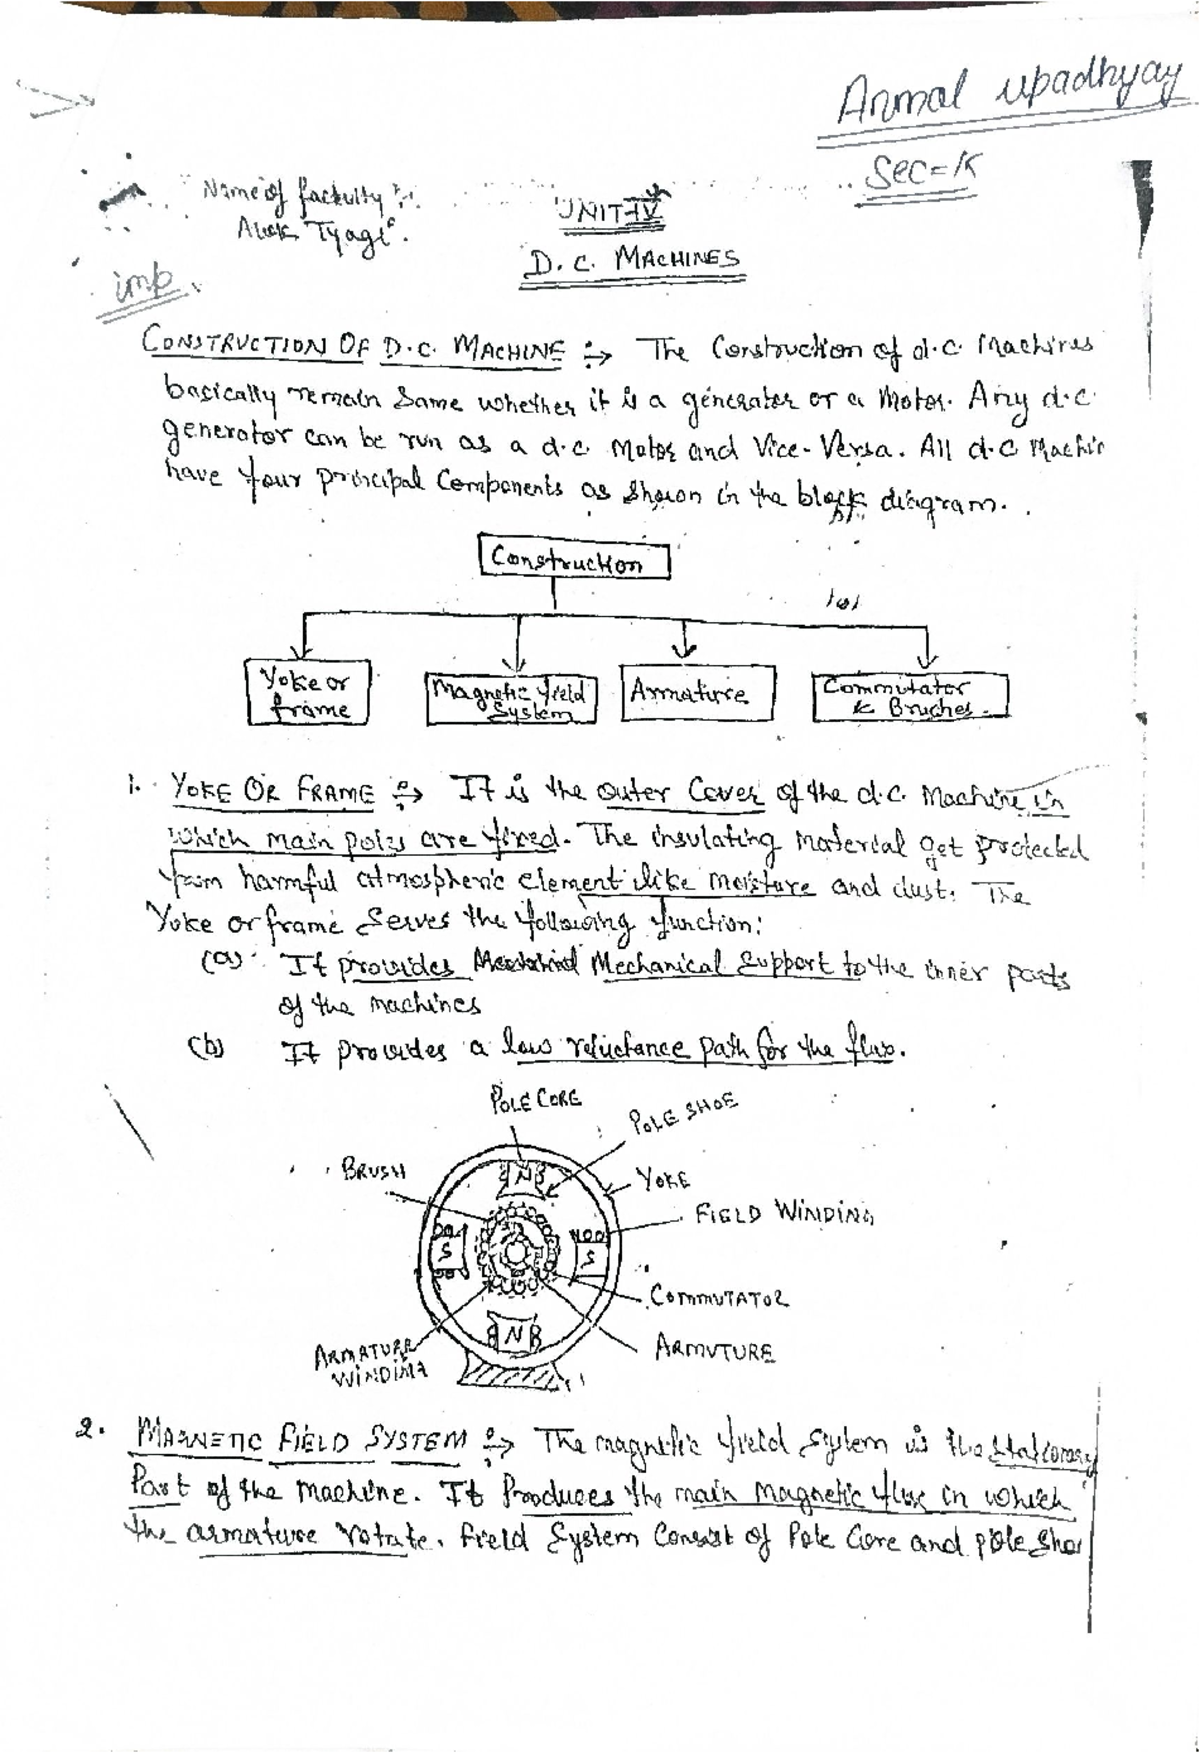 Anmol upadhyay
Sec=K
Name of fackulty :-
Alok Tyagi.
UNIT-IV
D.C. MACHINES
imp.
CONSTRUCTION OF D.C. MACHINE :→ The Construction of d.c. Machines
basically remain Same whether it is a generator or a Motor. Any d.c.
generator can be run as a d.c. Motor and Vice-Versa. All d.c Machin
have four principal Components as shown in the block diagram.
Construction
Yoke or
frame
Magnetic field
System
Armature
Commutator
& Bruches.
1. YOKE OR FRAME :→ It is the outer Cover of the d.c. Machine in
which main poles are fixed. The insulating material get protected
from harmful atmospheric element like moisture and dust. The
Yoke or frame Serves the following function:
(a) It provides Mechanical Support to the inner parts
of the machines
(b) It provides a low reluctance path for the flux.
POLE CORE
POLE SHOE
BRUSH
YOKE
FIELD WINDING
N
S
S
N
COMMUTATOR
ARMATURE
WINDING
ARMUTURE
2. MAGNETIC FIELD SYSTEM :→ The magnetic field System is the stationary
Part of the Machine. It Produces the main magnetic flux in which
the armature rotate. Field System Consist of Pole Core and pole shoe